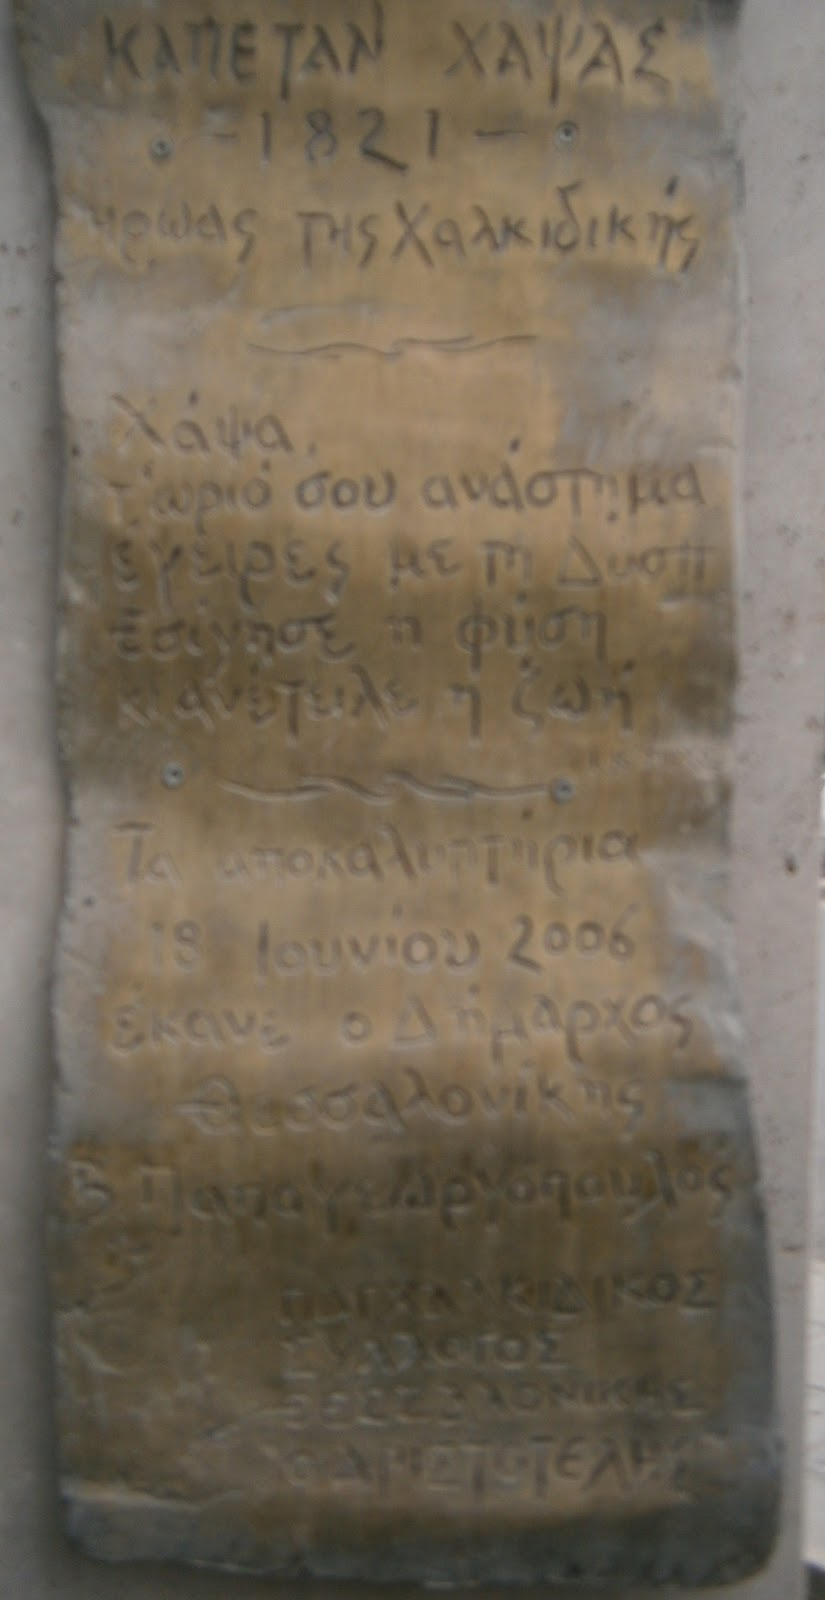 ΚΑΠΕΤΑΝ ΧΑΨΑΣ
- 1821 -
ήρωας της Χαλκιδικής
Χάψα,
τ' ωριό σου ανάστημα
έγειρες με τη
Εσίγησε η φύση
κι ανέτειλε η ζωή
Τα αποκαλυπτήρια
18 Ιουνίου 2006
έκανε ο Δήμαρχος
Θεσσαλονίκης
Β Παπαγεωργόπουλος
ΠΑΓΧΑΛΚΙΔΙΚΟΣ
ΣΥΛΛΟΓΟΣ
ΘΕΣΣΑΛΟΝΙΚΗΣ
Ο ΑΡΙΣΤΟΤΕΛΗΣ